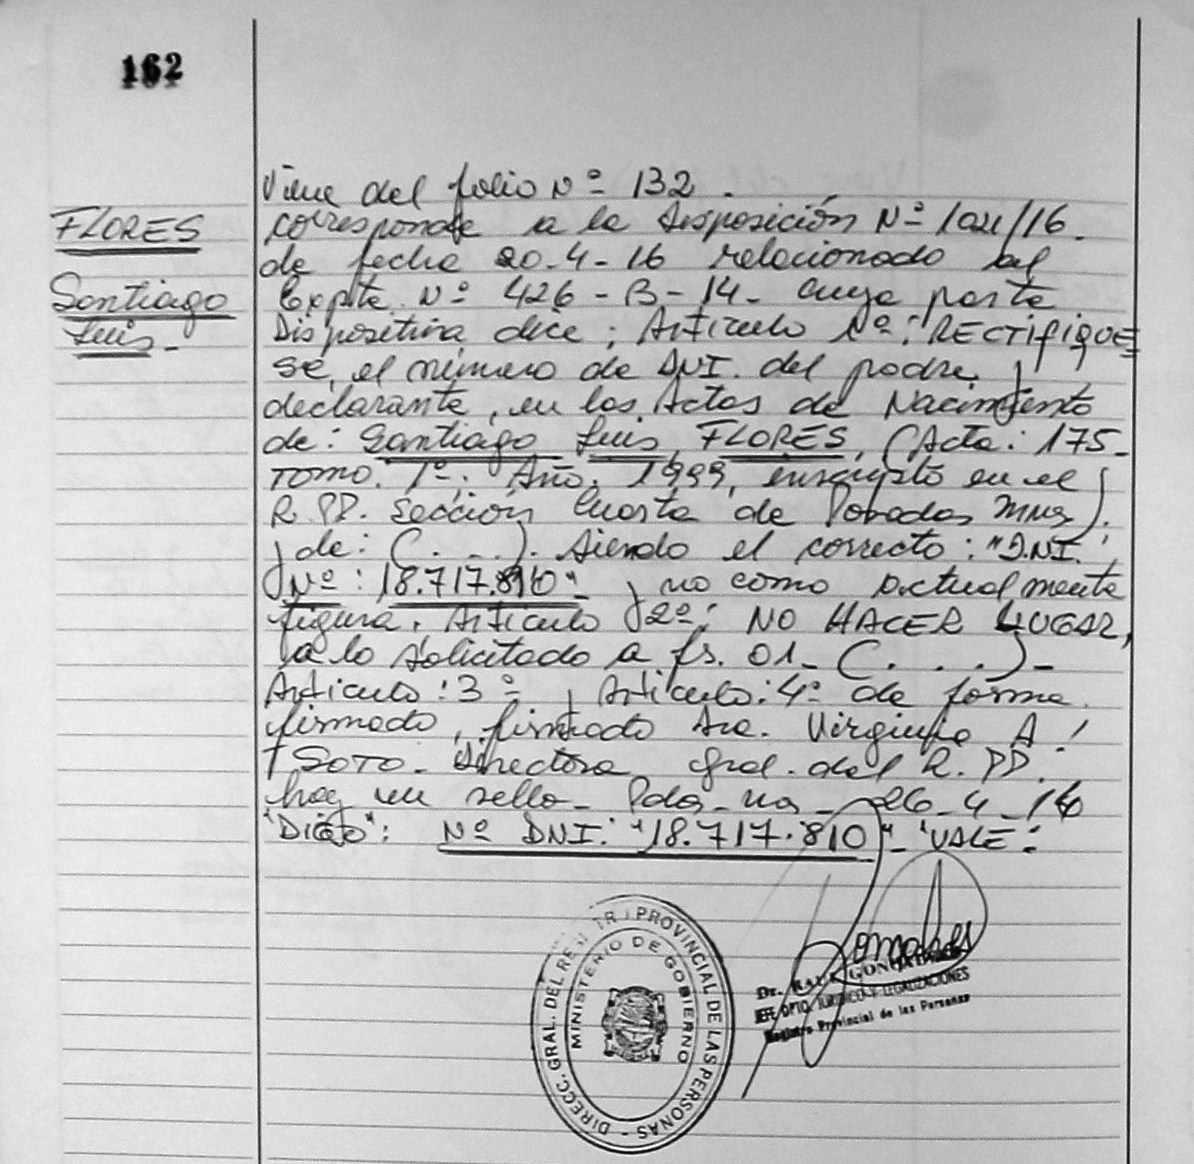 162
FLORES
Santiago
Luis-
Viene del folio Nº 132.
corresponde a la Disposición Nº 1021/16.
de fecha 20-4-16 relacionado al
Expte. Nº 426-B-14- cuya parte
Dispositiva dice: Artículo 1º: RECTIFIQUE
SE, el número de DNI. del padre
declarante, en las Actas de Nacimiento
de: Santiago Luis FLORES, (Acta: 175-
TOMO. 1º: Año, 1999, inscripto en el
R.PP. Sección Cuarta de Posadas Mnes).
y de: (. . .). Siendo el correcto: "DNI.
Nº: 18.717.810" y no como actualmente
figura. Artículo 2º: NO HACER LUGAR,
a lo solicitado a fs. 01- (. . .)-
Artículo: 3º y Artículo: 4º de forma
firmado, firmado Dra. Virginia A.
SOTO- Directora Gral. del R.PP.
hay un sello- Pdas-Mns- 26-4-16
"Digo": Nº DNI: "18.717.810"- "VALE":
DIRECC. GRAL. DEL REGISTR PROVINCIAL DE LAS PERSONAS -
MINISTERIO DE GOBIERNO
Dr. RAUL GONZALEZ
JEFE DPTO. JURIDICO Y LEGALIZACIONES
Registro Provincial de las Personas